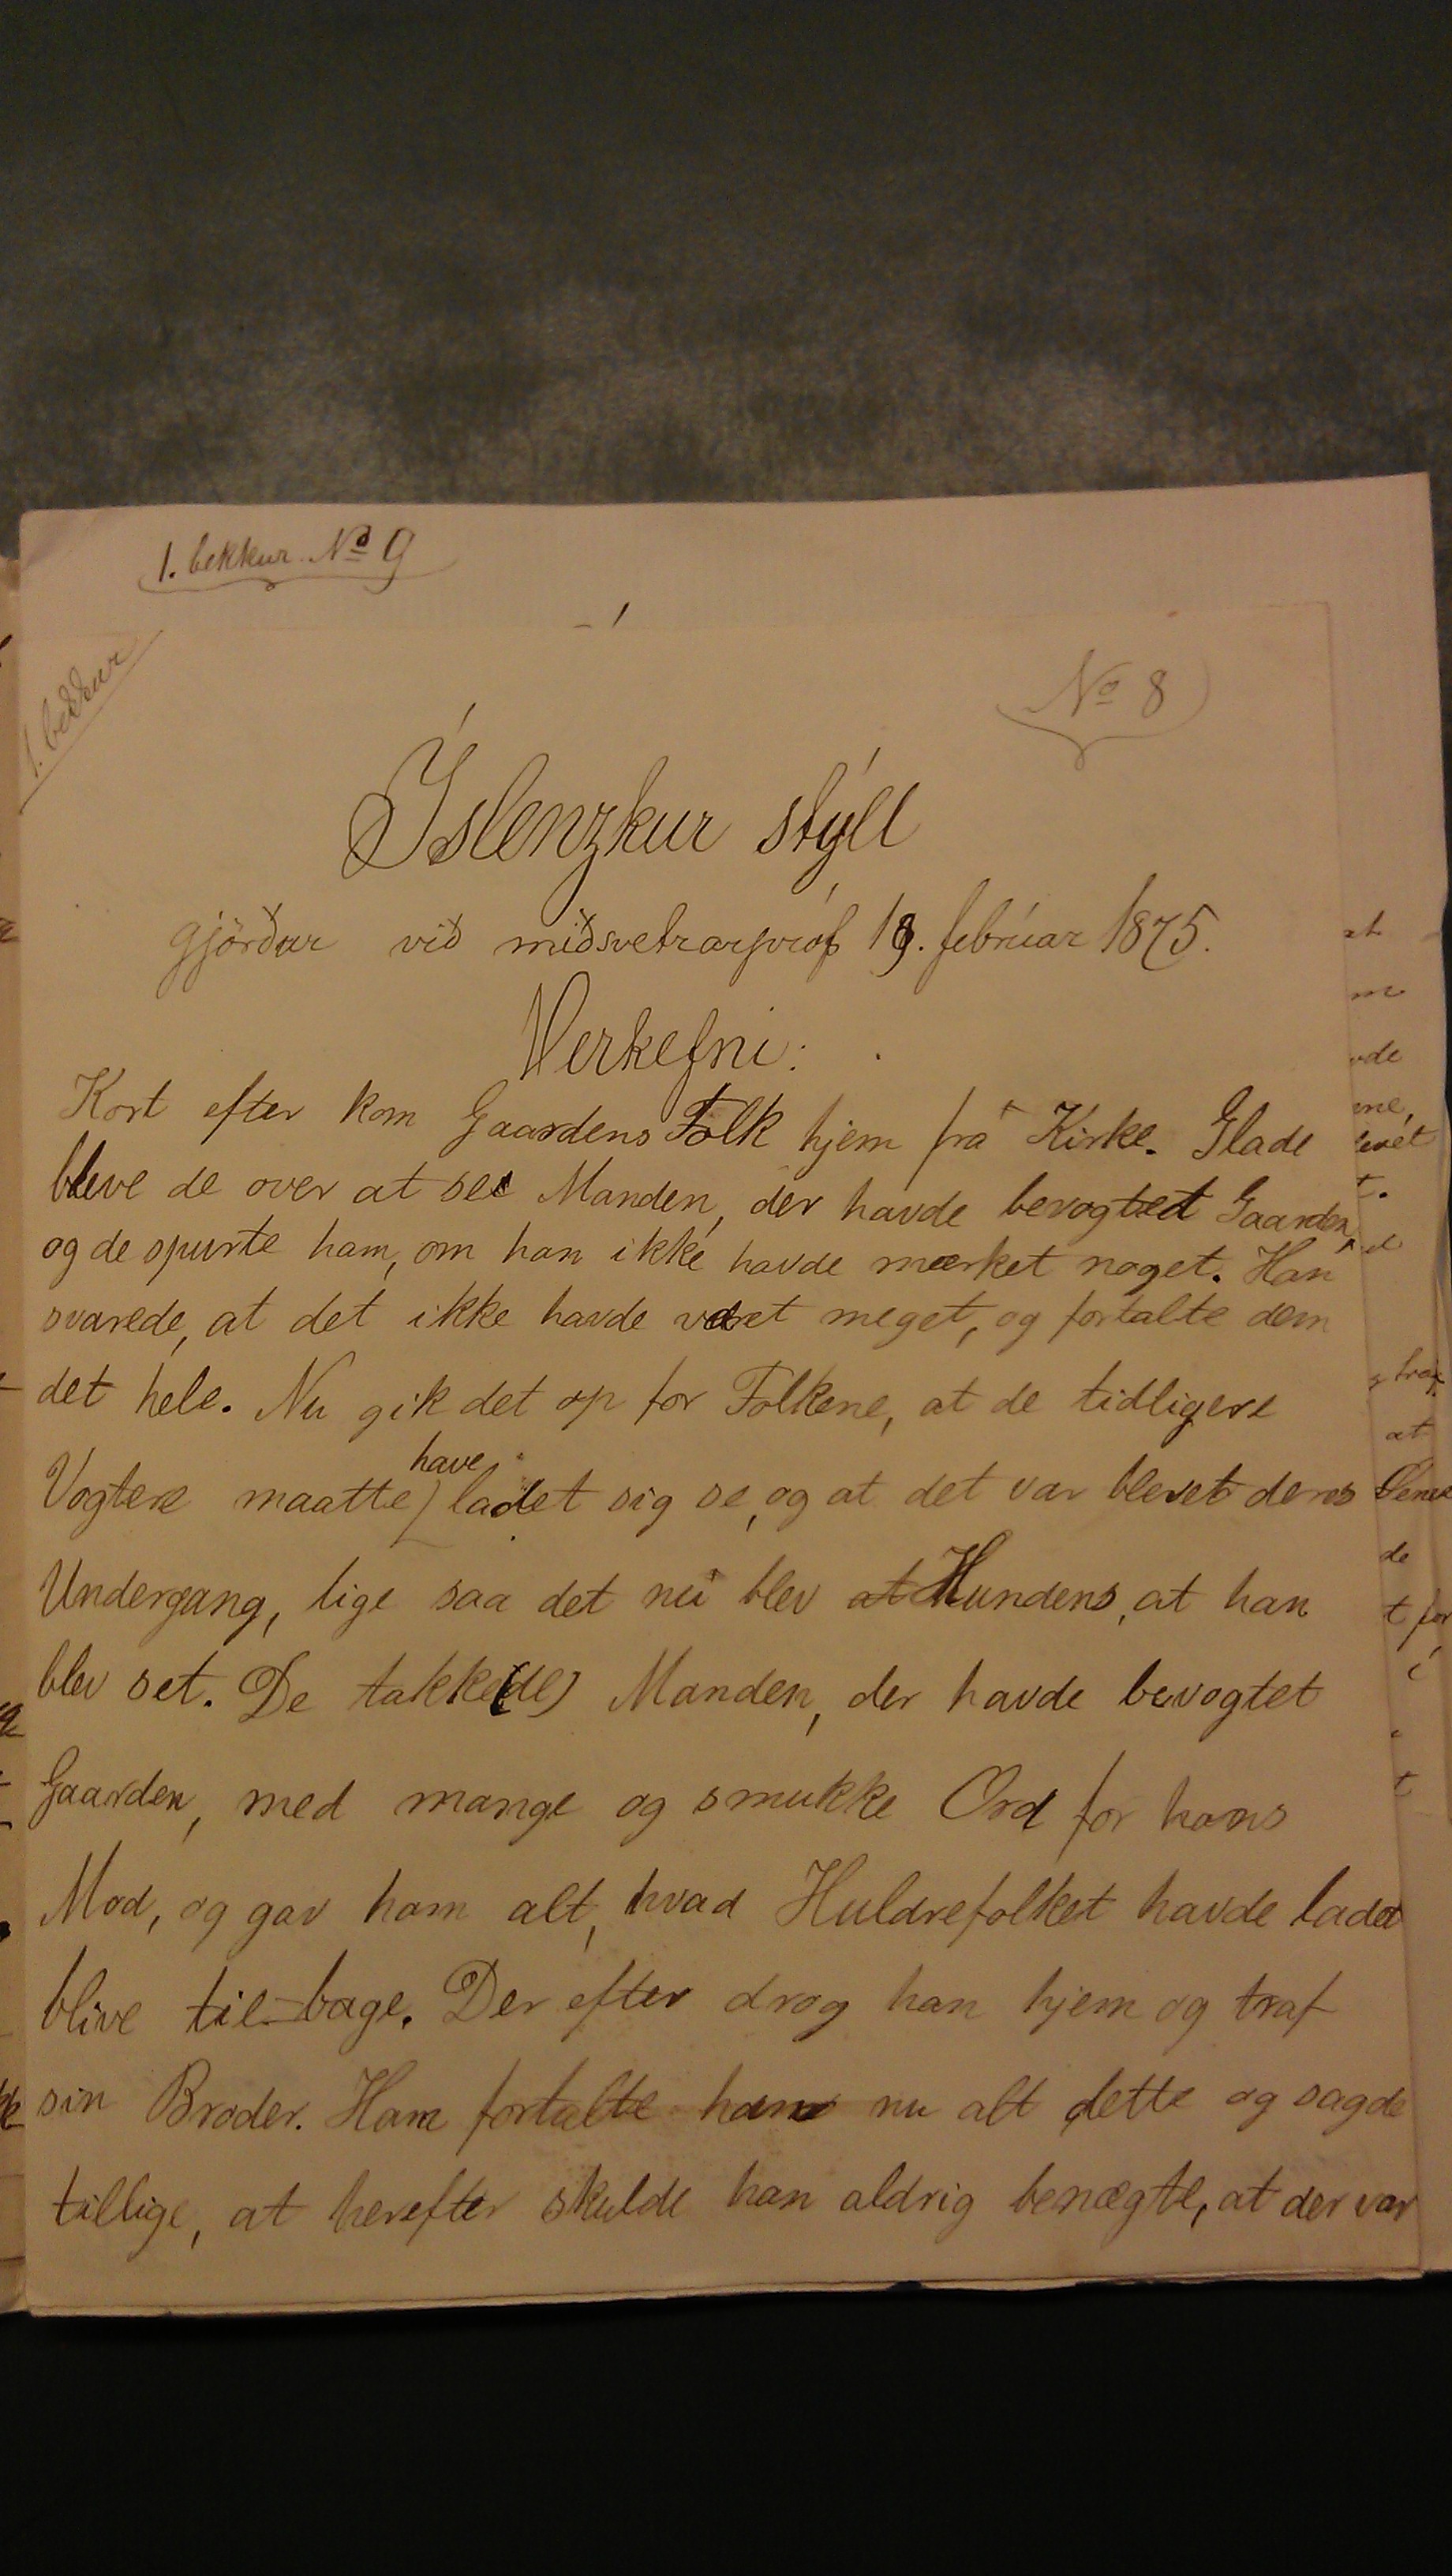 1. bekkur. No 9
1. bekkur
No 8
Íslenzkur stýll
gjörður við miðsvetrarpróf 19. febrúar 1875.
Verkefni:
Kort efter kom Gaardens Folk hjem fra Kirke. Glade
bleve de over at see Manden, der havde bevogtet Gaarden,
og de spurte ham, om han ikke havde mærket noget. Han
svarede, at det ikke havde været meget, og fortalte dem
det hele. Nu gik det op for Folkene, at de tidligere
Vogtere maatte have ladet sig se, og at det var blevet deres
Undergang, lige saa det nu blev at Hundens, at han
blev set. De takke(de) Manden, der havde bevogtet
Gaarden, med mange og smukke Ord for hans
Mod, og gav ham alt, hvad Huldrefolket havde ladet
blive til-bage. Der efter drog han hjem og traf
sin Broder. Ham fortalte han nu alt dette og sagde
tillige, at herefter skulde han aldrig benægte, at der var